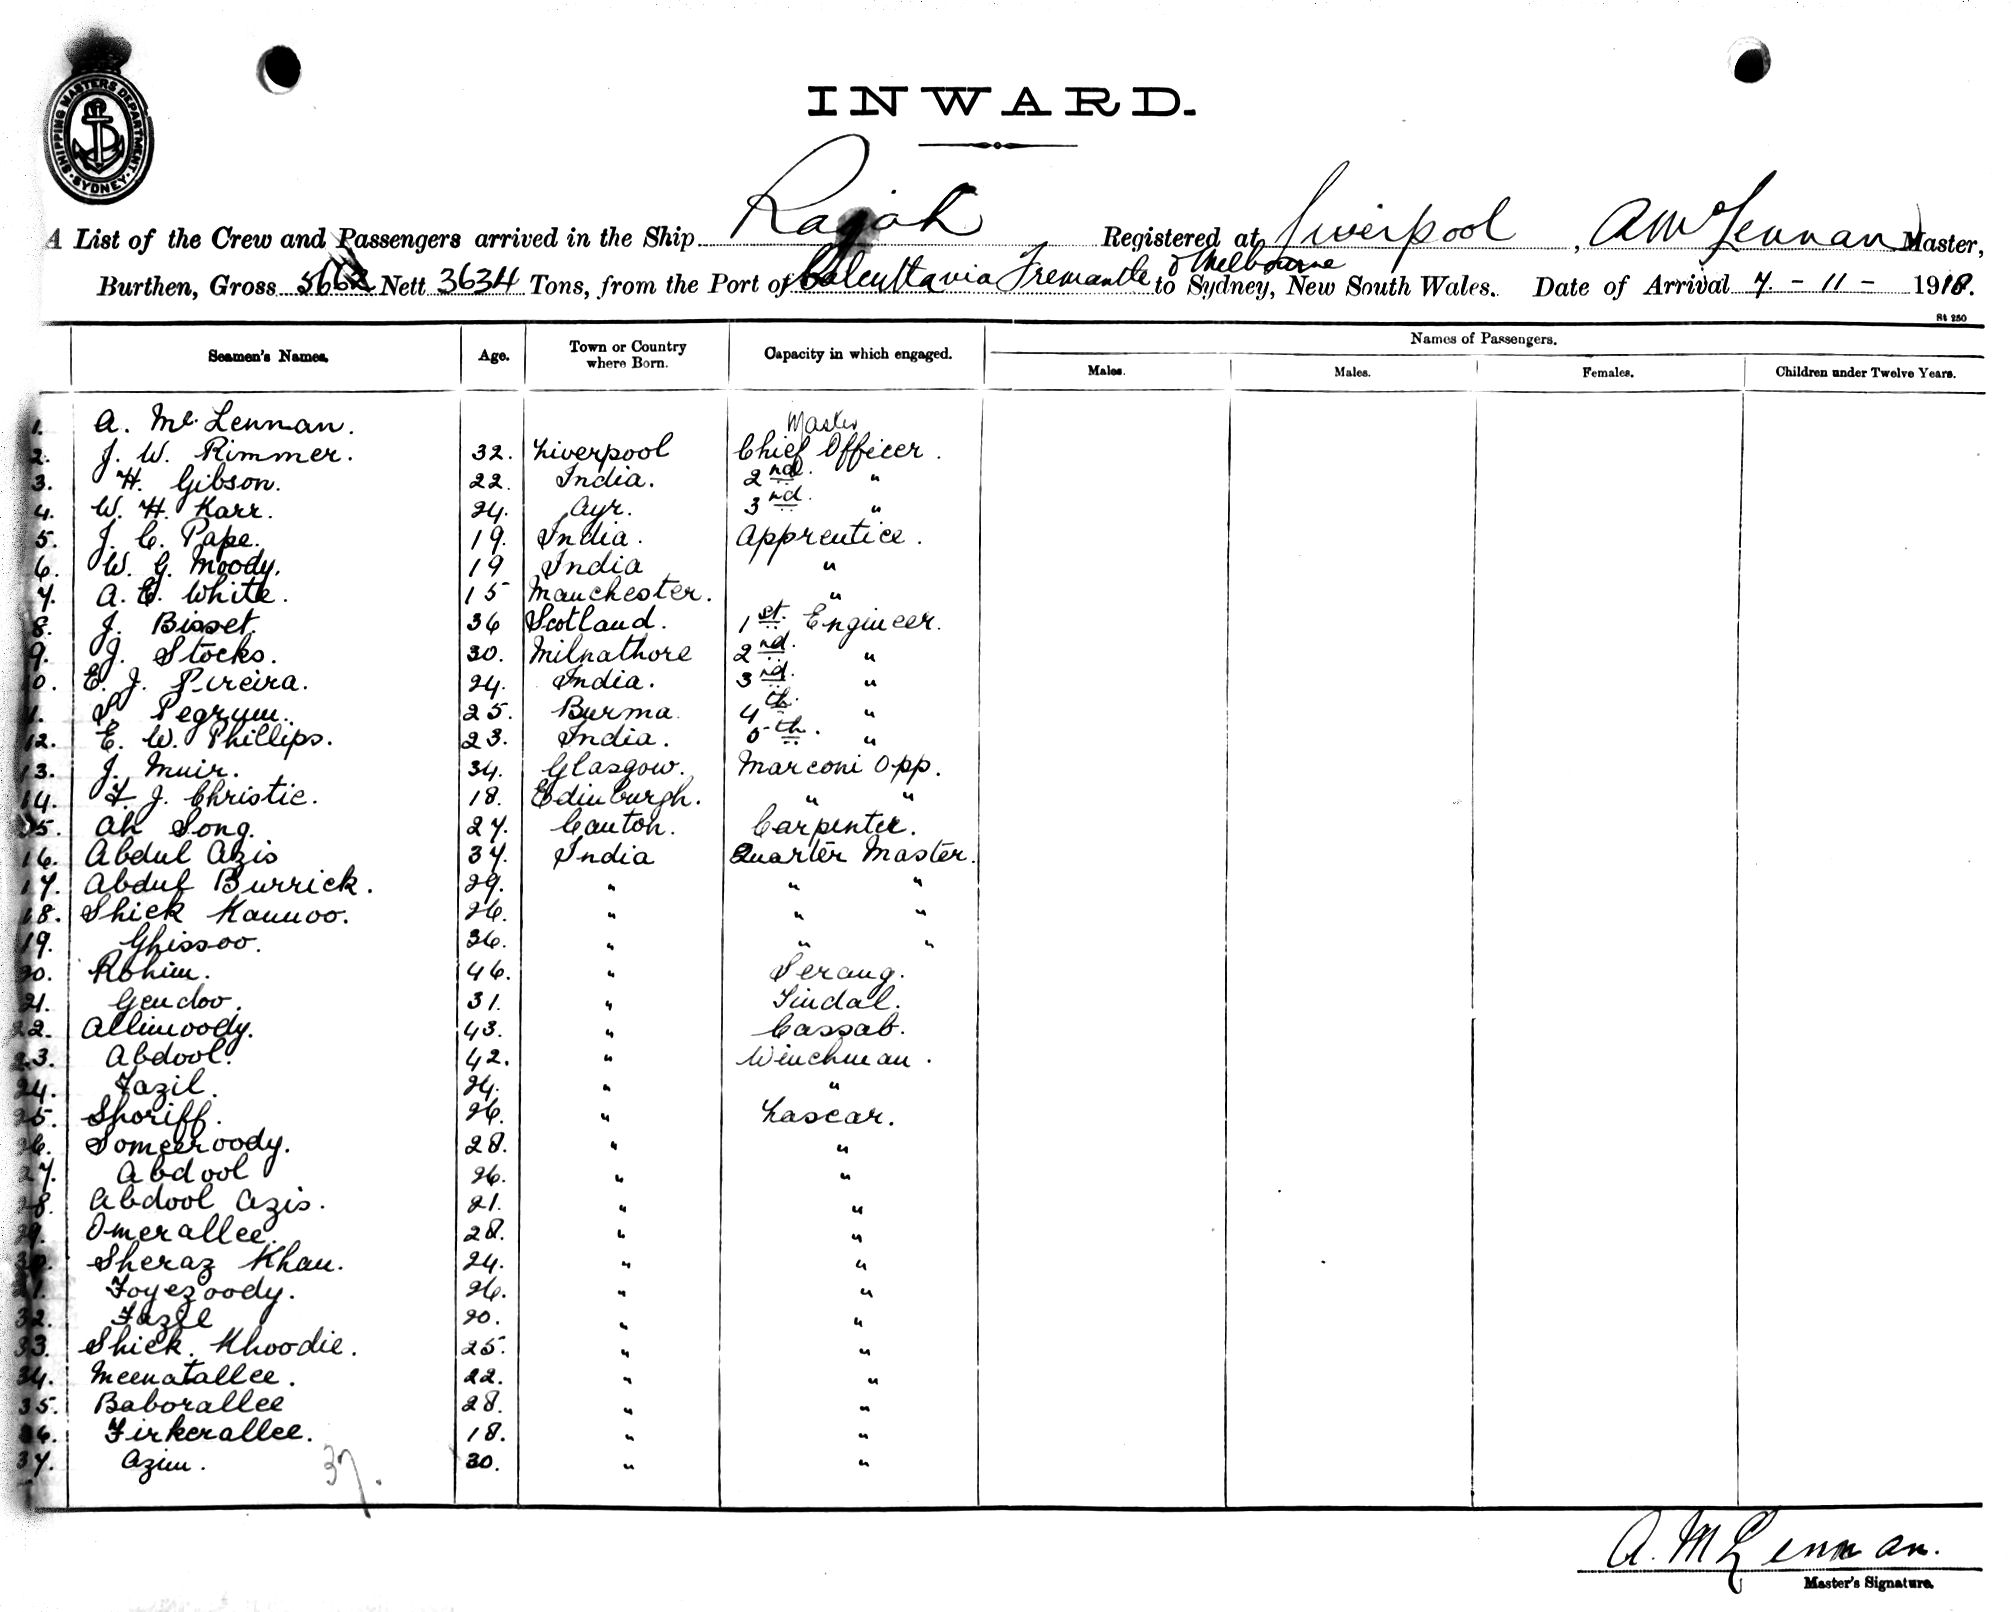 SHIPPING MASTERS DEPARTMENT. SYDNEY.
INWARD.
A List of the Crew and Passengers arrived in the Ship Rajah Registered at Liverpool, A McLennan Master,
Burthen, Gross Nett 3634 Tons, from the Port of Calcutta via Fremantle & Melbourne to Sydney, New South Wales. Date of Arrival 7 - 11 - 1918.
St 250
Seamen's Names. Age. Town or Country where Born. Capacity in which engaged. Names of Passengers.
Males. Males. Females. Children under Twelve Years.
1. A. McLennan. Master
2. J. W. Rimmer. 32. Liverpool Chief Officer.
3. H. Gibson. 22. India. 2nd. "
4. W. H. Karr. 24. Ayr. 3rd. "
5. J. C. Pape. 19. India. Apprentice.
6. W. G. Moody. 19 India "
7. A. E. White. 15 Manchester. "
8. J. Bisset. 36 Scotland. 1st. Engineer.
9. J. Stocks. 30. Milnathore 2nd. "
10. E. J. Pireira. 24. India. 3rd. "
11. S. Pegrum. 25. Burma. 4th. "
12. E. W. Phillips. 23. India. 5th. "
13. J. Muir. 34. Glasgow. Marconi Opp.
14. F. J. Christie. 18. Edinburgh. " "
15. Ah Song. 27. Canton. Carpenter.
16. Abdul Azis 37. India Quarter Master.
17. Abdul Burrick. 29. " " "
18. Shick Kannoo. 26. " " "
19. Ghissoo. 36. " " "
20. Rohim. 46. " Serang.
21. Gendoo. 31. " Tindal.
22. Allimoody. 43. " Cassab.
23. Abdool. 42. " Winchman.
24. Fazil. 24. " "
25. Shoriff. 26. " Lascar.
26. Someeroody. 28. " "
27. Abdool 26. " "
28. Abdool Azis. 21. " "
29. Omerallee. 28. " "
30. Sheraz Khan. 24. " "
31. Foyezoody. 26. " "
32. Fazil 20. " "
33. Shick. Khoodie. 25. " "
34. Meenatallee. 22. " "
35. Baborallee 28. " "
36. Firkerallee. 18. " "
37. Azim. 30. " "
37.
A. McLennan.
Master's Signature.